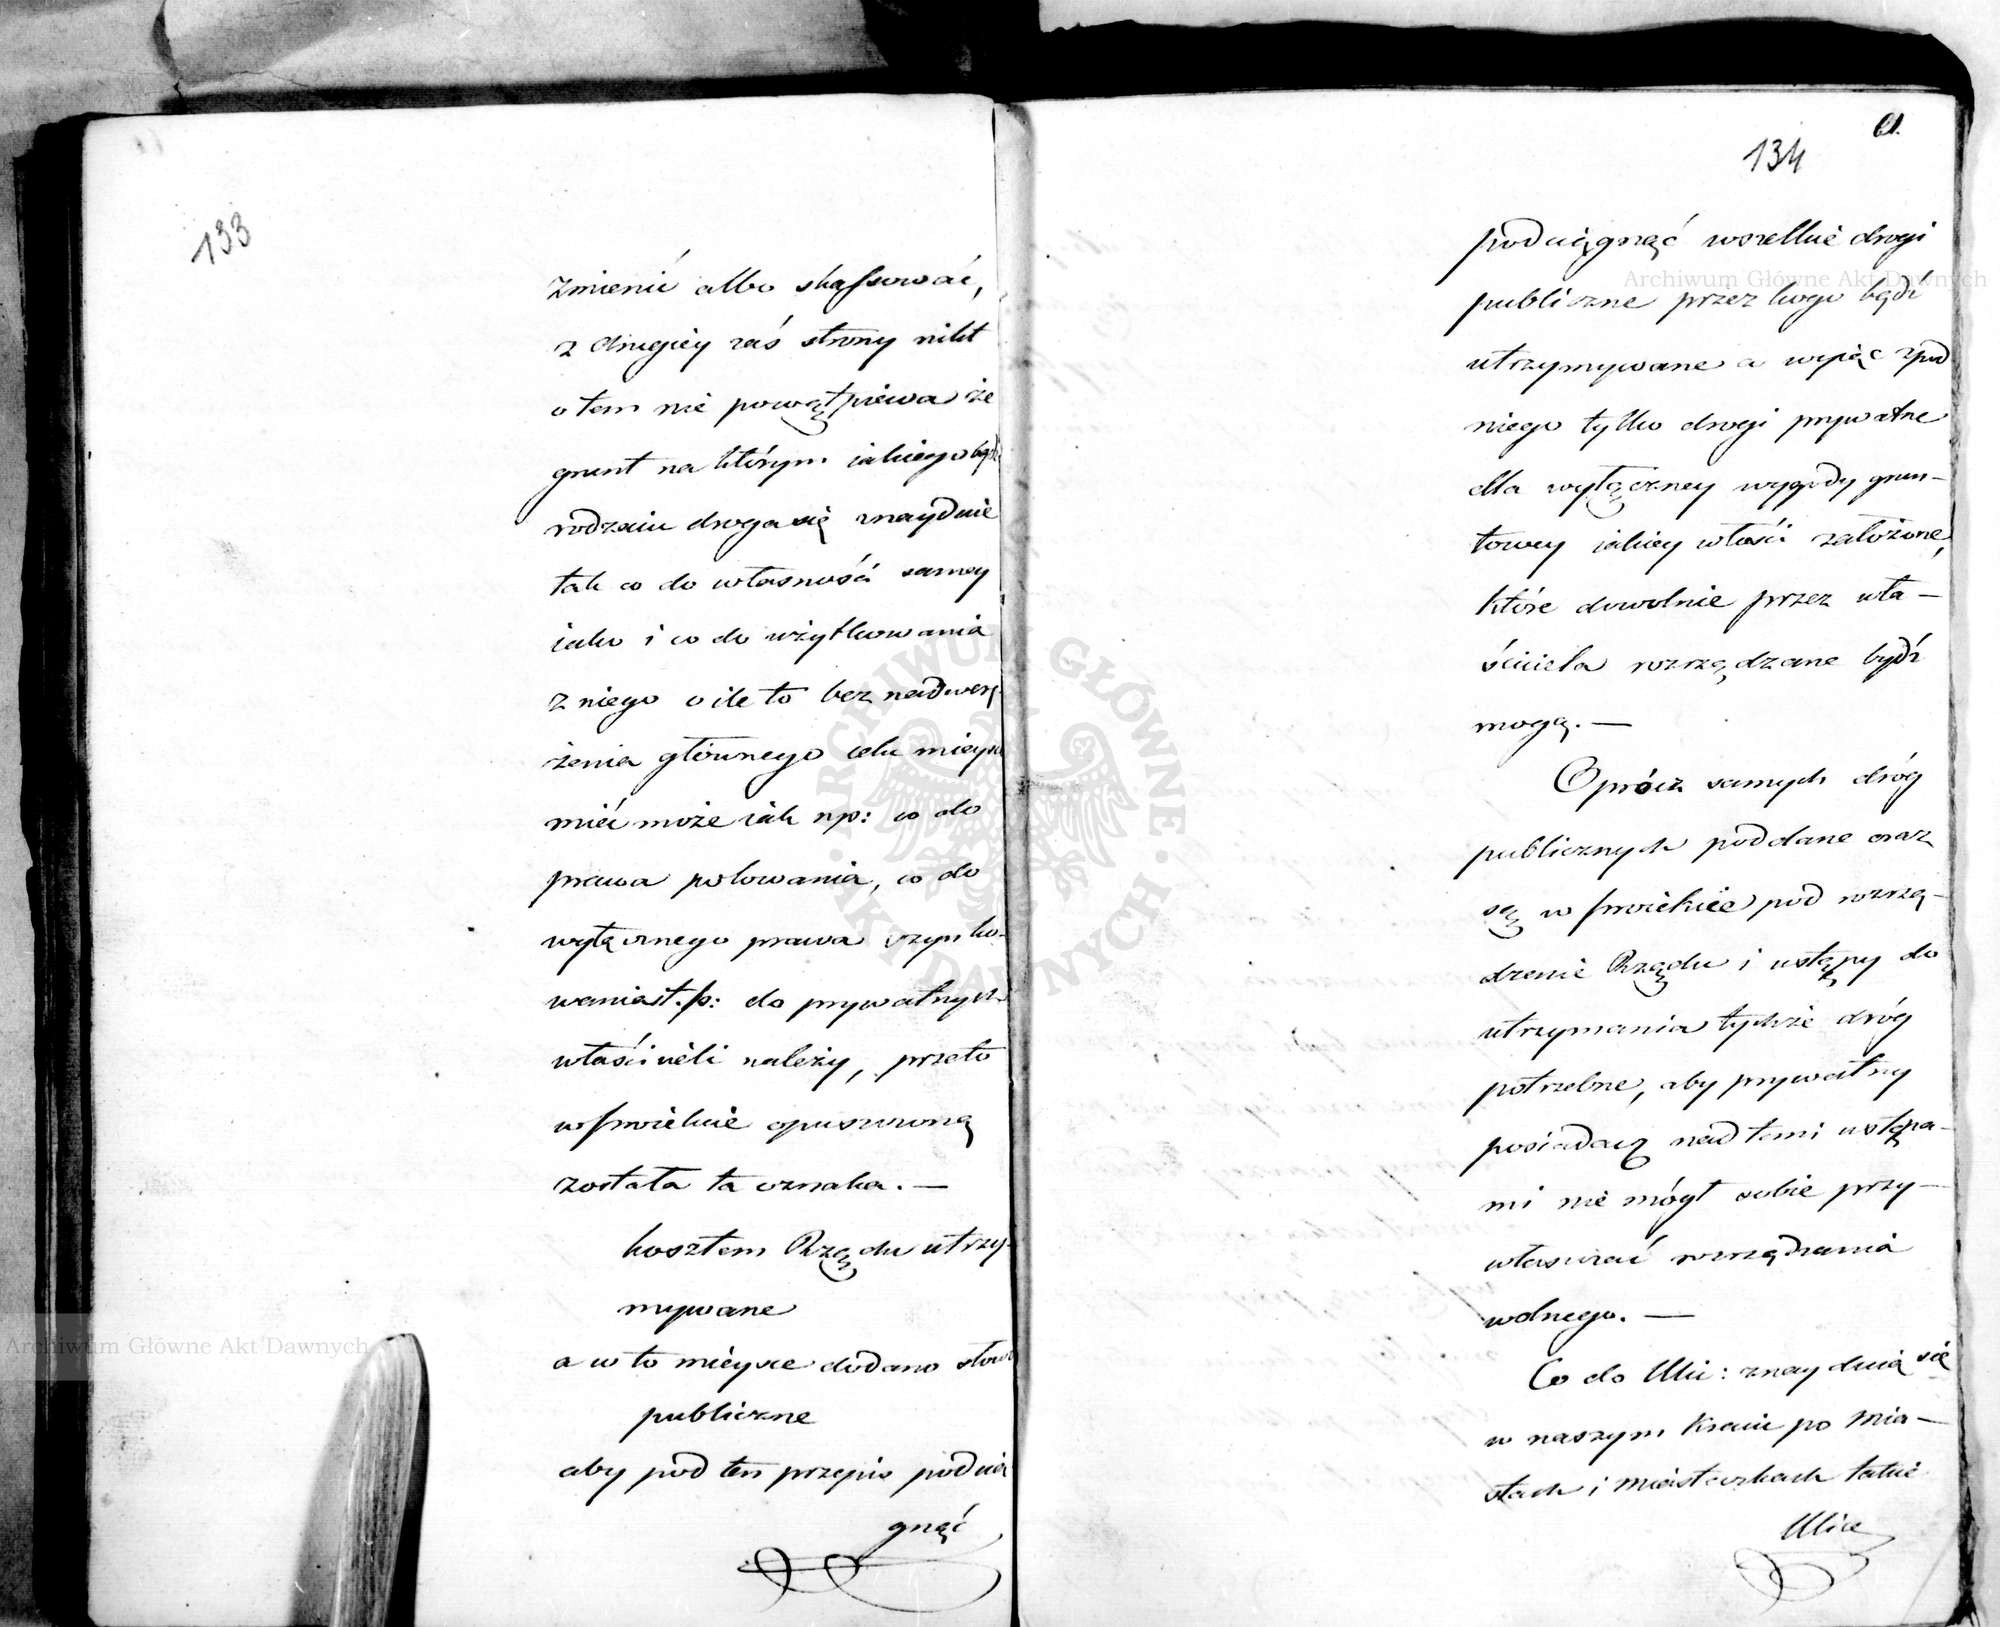 133
zmienić albo skassować,
z drugiéy zaś strony nikt
o tem nie powątpiewa że
grunt na którym iakiego bądź
rodzaiu droga się znayduie
tak co do własności samey
iako i co do użytkowania
z niego o ile to bez nadwerę-
żenia głównego celu mieysce
mieć może iak np: co do
prawa polowania, co do
wyłącznego prawa szynko-
wania t.p: do prywatnych
właścicieli należy, przeto
w proiekcie opuszczoną
została ta oznaka. —
kosztem Rządu utrzy-
mywane
a w to mieysce dodano słowo
publiczne
aby pod ten przepis podcią
gnąć
61.
134
podciągnąć wszelkie drogi
publiczne przez kogo bądź
utrzymywane a wyiąć zpod
niego tylko drogi prywatne
dla wyłączney wygody grun-
towey iakiey włości założone,
które dowolnie przez wła-
ściciela rozrządzane bydź
mogą. —
Oprócz samych dróg
publicznych poddane oraz
są w proiekcie pod rozrzą-
dzenie Rządu i ustępy do
utrzymania tychże dróg
potrzebne, aby prywatny
posiadacz nad temi ustępa-
mi nie mógł sobie przy-
właszczać rozrządzania
wolnego. —
Co do Ulic: znayduią się
w naszym Kraiu po Mia-
stach i Miasteczkach takie
Ulice
Archiwum Główne Akt Dawnych
Archiwum Główne Akt Dawnych
ARCHIWUM GŁÓWNE · AKT DAWNYCH ·